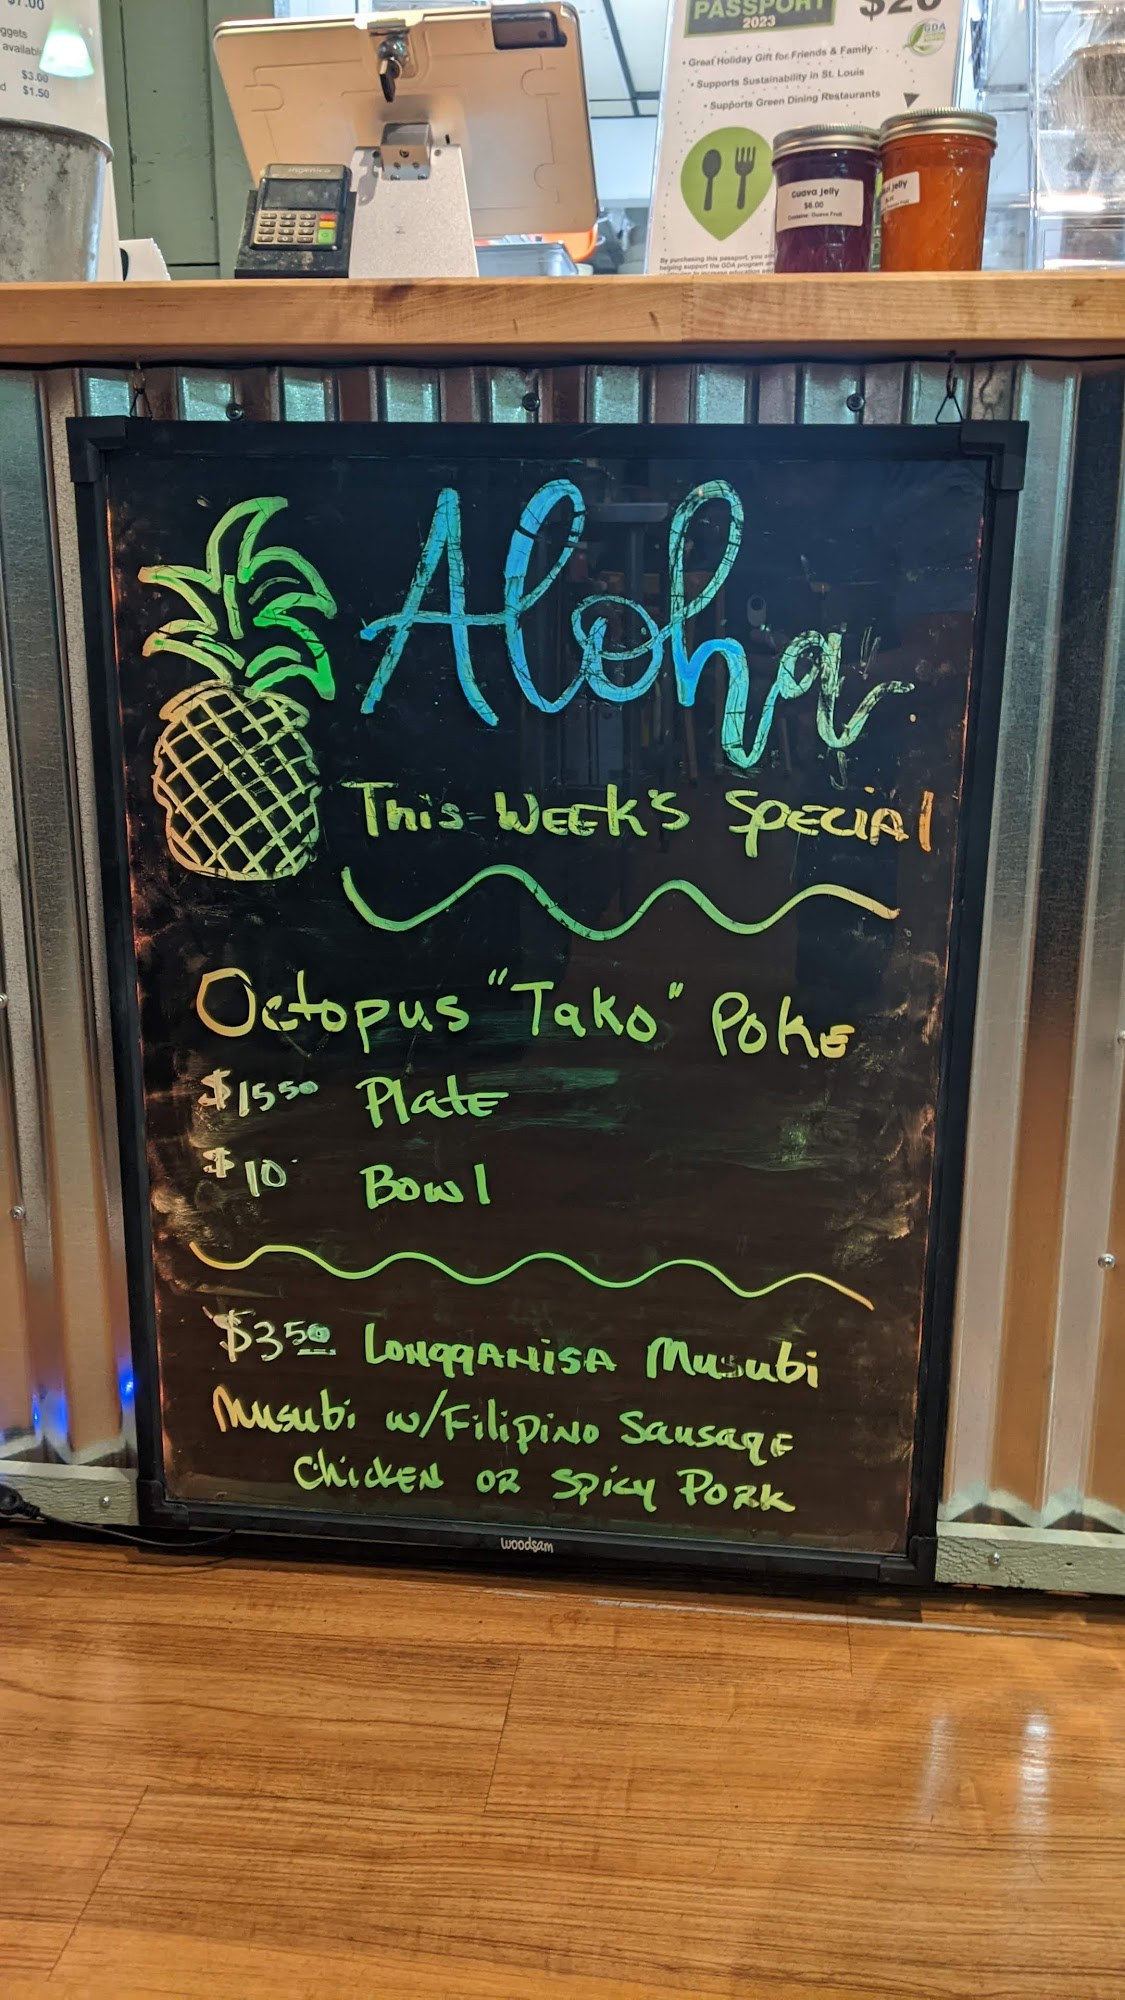 $7.00
ggets
$3.00
$1.50
ingenico
PASSPORT
2023
$20
• Great Holiday Gift for Friends & Family
• Supports Sustainability in St. Louis
• Supports Green Dining Restaurants
GDA
Guava Jelly
$6.00
Jelly
By purchasing this passport, you
helping support the GDA program
Aloha
This Week's Special
Octopus "Tako" Poke
$15.50 Plate
$10 Bowl
$3.50 Longganisa Musubi
Musubi w/Filipino Sausage
Chicken or Spicy Pork
woodsam